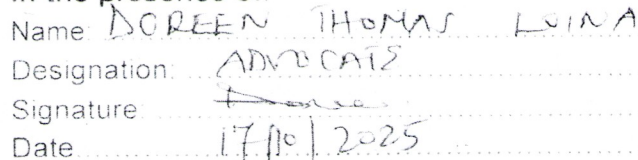 Name: DOREEN THOMAS LUINA
Designation: ADVOCATE
Signature
Date 17/10/2025